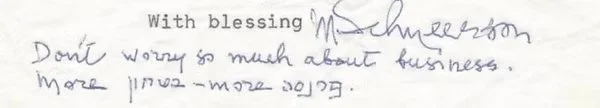 With blessing M. Schneerson
Don't worry so much about business.
More בטחון - more פרנסה.